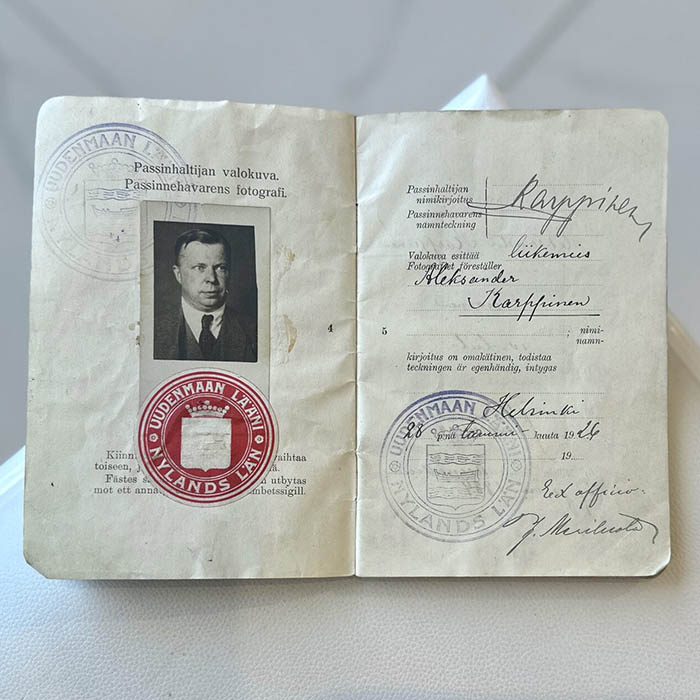 UUDENMAAN LÄÄNI
Passinhaltijan valokuva.
Passinnehavarens fotografi.
4
UUDENMAAN LÄÄNI
NYLANDS LÄN
Kiinn vaihtaa
toiseen, j
Fästes s n utbytas
mot ett anna mbetssigill.
Passinhaltijan
nimikirjoitus
Passinnehavarens
namnteckning
Karppinen
Valokuva esittää liikemies
Fotografiet föreställer
Aleksander
Karppinen
5
; nimi-
namn-
kirjoitus on omakätinen, todistaa
teckningen är egenhändig, intygas
Helsinki
28 p:nä tammi kuuta 1926
19
UUDENMAAN LÄÄNI
NYLANDS LÄN
Ex officio